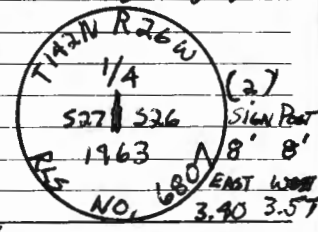 T142N R26W
1/4
S27 S26
1963
RLS NO. 6807
(2)
SIGN POST
8' 8'
EAST WEST
3.40 3.57